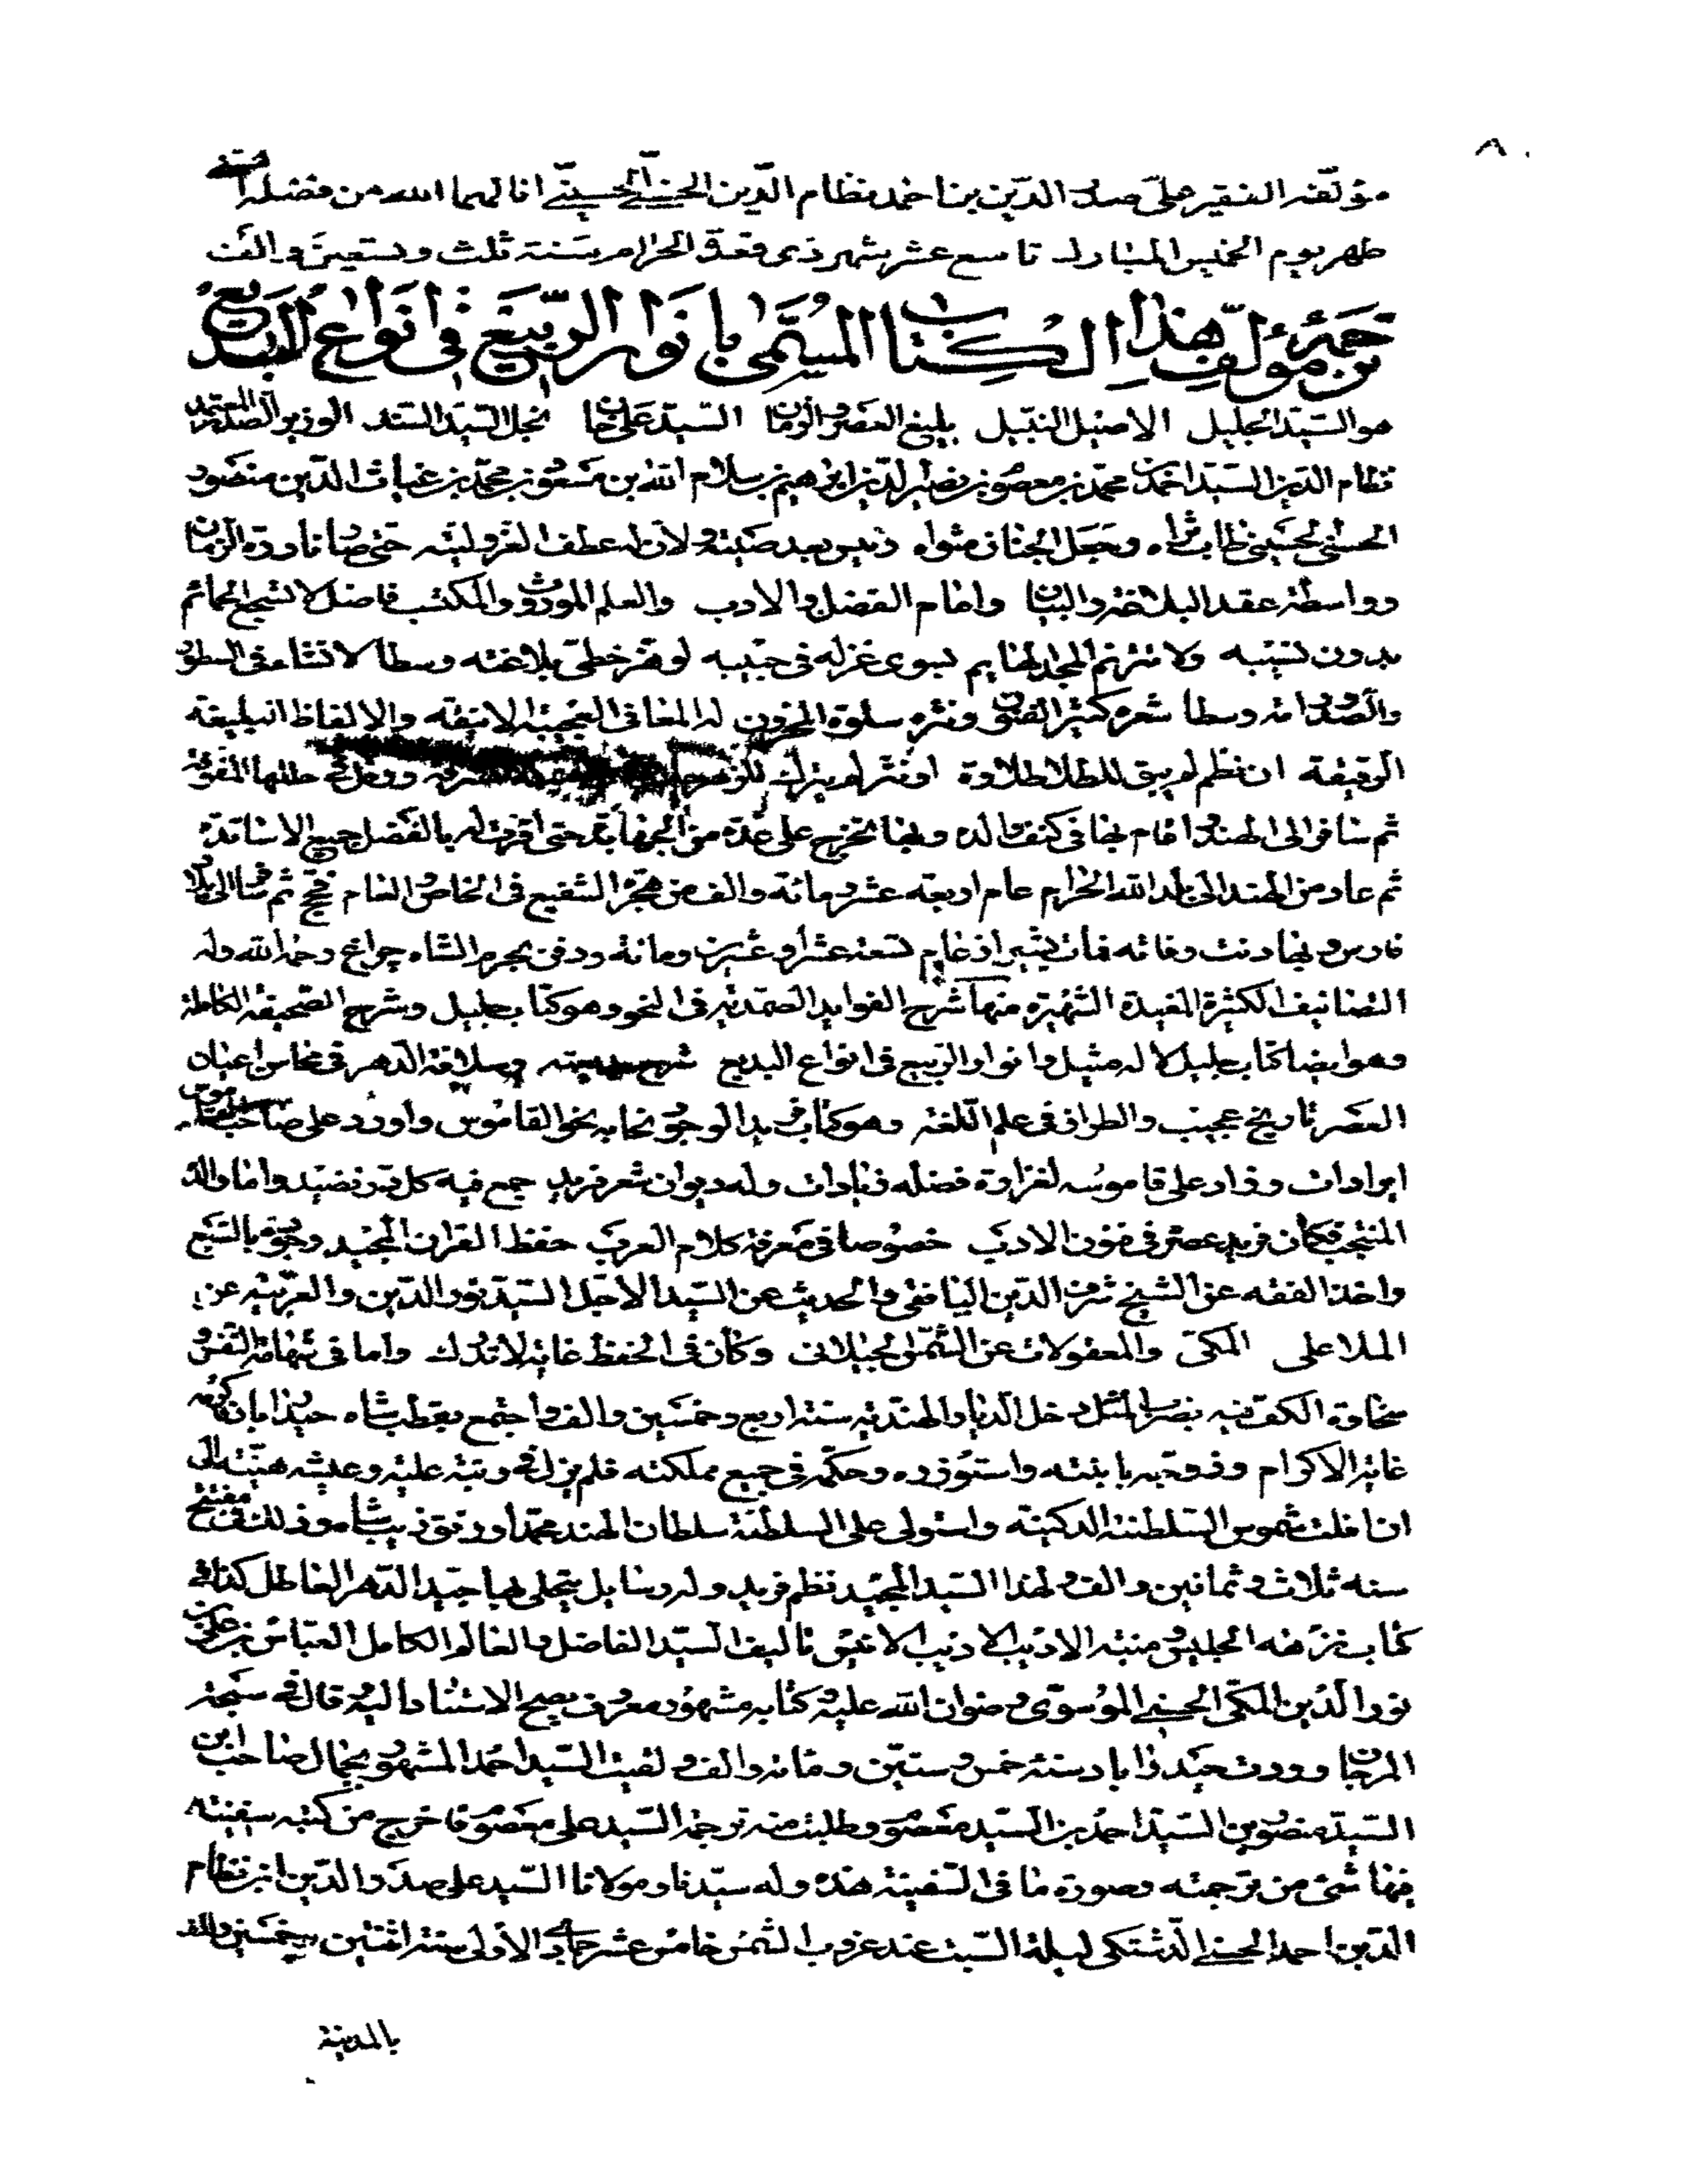 ٨
مؤلفه الفقير علي صدر الدين بن احمد نظام الدين الحسني الحسيني انالهما الله من فضله السني
ظهر يوم الخميس المبارك تاسع عشر شهر ذي قعدة الحرام سنة ثلث وتسعين والف
ترجمة مؤلف هذا الكتاب المسمى بانوار الربيع في انواع البديع
هو السيد الجليل الاصيل النبيل بليغ العصر والزمان السيد علي خان نجل السيد السند الوزير الصدر المعتمد
نظام الدين السيد احمد بن محمد بن معصوم بن نصير الدين ابراهيم بن سلام الله بن مسعود بن محمد بن غياث الدين منصور
الحسني الحسيني طاب ثراه وجعل الجنان مثواه رئيس بعد صيته ولان له عطف العز وليته حتى صار نادرة الزمان
وواسطة عقد البلاغة والبيان وامام الفضل والادب والعلم الموروث والمكتسب فاضل لا تسجع الحمائم
بدون نسيبه ولا تترنم سوى غزله في حبيبه لو هز خطي بلاغته وسطا لانتشاء في السطور
والصدور امة وسطا شعره كثير الفنون ونثره سلوة المحزون له المعاني العجيبة الانيقه والالفاظ البليغة
الرقيقة ان نظم لم يبق للطلا طلاوة او نثر لم يترك حللها المفوفة
ثم سافر الى الهند واقام بها في كنف والده وبها تخرج على عدة من الجهابذة حتى اقرت له بالفضل جميع الاساتذة
ثم عاد من الهند الى بلد الله الحرام عام اربعة عشر ومائة والف من هجرة الشفيع في الخاص والعام فحج ثم سافر الى بلاد
فارس وبها دنت وفاته فمات بشيراز عام تسعة عشر ومائة ودفن بحرم الشاه چراغ رحمه الله وله
التصانيف الكثيرة المفيدة الشهيرة منها شرح الفوايد الصمدية في النحو وهو كتاب جليل وشرح الصحيفة الكاملة
وهو ايضا كتاب جليل لا له مثيل وانوار الربيع في انواع البديع شرح بديعيته وسلافة الدهر في محاسن اعيان
العصر تاريخ عجيب والطراز في علم اللغة وهو كتاب فريد الوجود نحا به نحو القاموس واورد على صاحب القاموس
ايرادات وزاد على قاموسه لغزارة فضله زيادات وله ديوان شعر فريد جمع فيه كل در نضيد واما والده
المنتجب فكان فريد عصره في فنون الادب خصوصا في معرفة كلام العرب حفظ القران المجيد وجوده بالسبع
واخذ الفقه عن الشيخ شرف الدين اليافعي والحديث عن السيد الاجل السيد نور الدين والعربية عن
الملا علي المكي والمعقولات عن الشمس الجيلاني وكان في الحفظ غاية لا تدرك واما في شهامة النفس
سخاوة الكف فبه يضرب المثل دخل الديار الهندية سنة اربع وخمسين والف واجتمع بقطب شاه حيدراباد فاكرمه
غاية الاكرام وزوجه بابنته واستوزره وحكمه في جميع مملكته فلم يزل في رتبة عليه وعيشه هنيه الى
ان افلت شموس السلطنة الدكنيه واستولى على السلطنة سلطان الهند محمد اورنق زيب شاه وذلك في مفتتح
سنه ثلاث وثمانين والف ولهذا السيد المجيد نظم فريد وله رسايل يتحلى بها جيد الدهر العاطل كذا في
كتاب نزهة الجليس ومنية الاديب الانيس تاليف السيد الفاضل والعالم الكامل العباس بن علي بن
نور الدين المكي الحسيني الموسوي رضوان الله عليه وكتابه مشهور معروف يصح الاستناد اليه قال في سبحة
المرجان وردت حيدراباد سنة خمس وستين ومائة والف ولقيت السيد احمد المشهور بخمال صاحب ابن
السيد منصور بن السيد احمد بن السيد معصوم وطلبت منه ترجمة السيد علي معصوم فاخرج من كتبه سفينة
فيها شئ من ترجمته وصورة ما في السفينة هذه وله سيدنا ومولانا السيد علي صدر الدين ابن نظام
الدين احمد الحسني الدشتكي ليلة السبت عند غروب الشمس خامس عشر جمادى الأولى سنة اثنتين وخمسين والف
بالمدينة